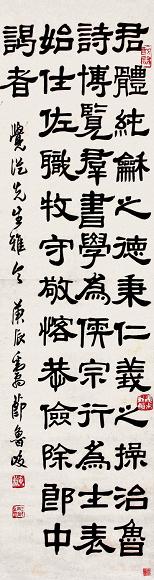 君體純龢之德秉仁義之操治魯
詩博覽羣書學為儒宗行為士表
始仕佐職牧守敬愘恭儉除郎中
謁者
覺先生雅令 庚辰 節魯峻